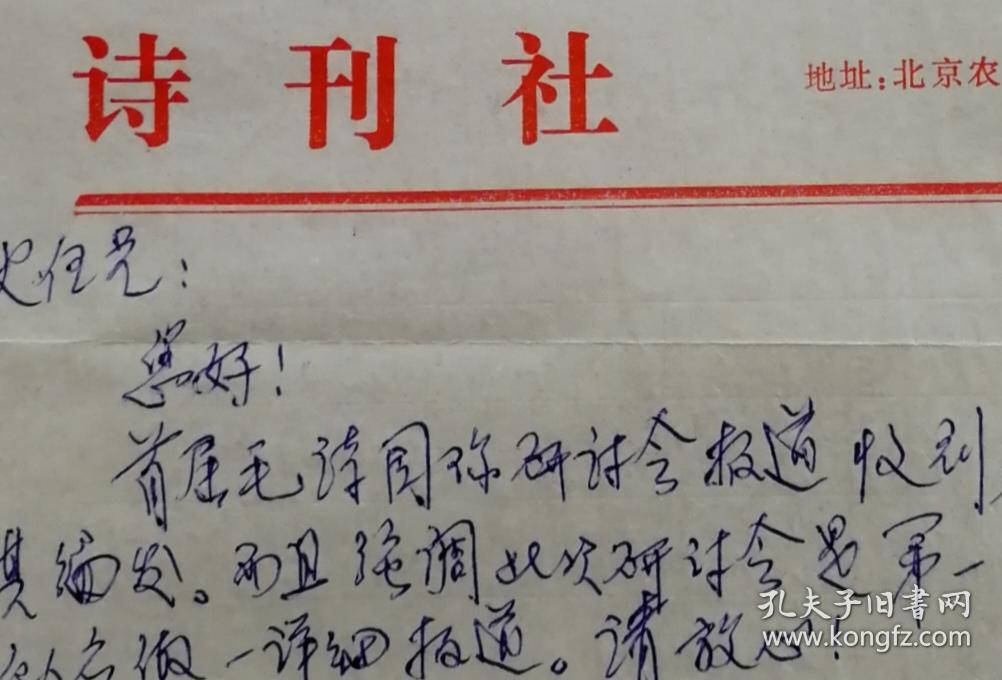 诗刊社
地址:北京农
史任兄:
您好!
首届毛诗国际研讨会报道收到,
其编发。而且强调此次研讨会是第一
做一详细报道。请放心!
孔夫子旧书网
www.kongfz.com